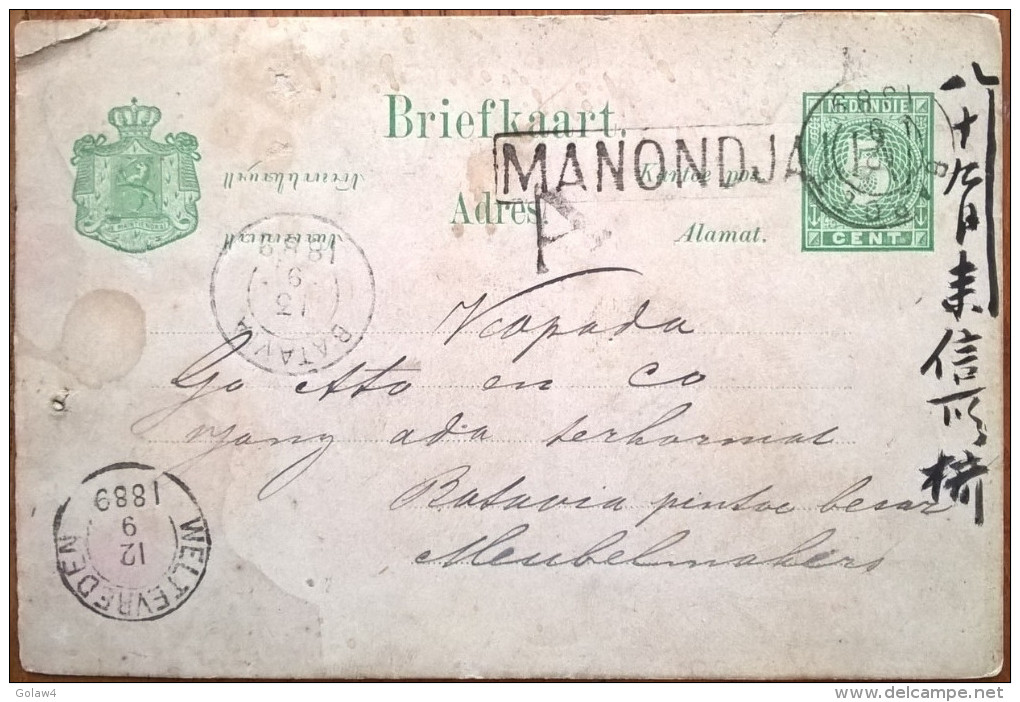 Briefkaart.
MANONDJA
Kantoe pos
Adres.
Alamat.
NED. INDIE
CENT
BATAVIA
13
9
1889
Kapada
Go Atto en Co
yang ada terhormat
Batavia pintoe besar
Meubelmakers
WELTEVREDEN
12
9
1889
八十九日来信
Golaw4
delcampe.net